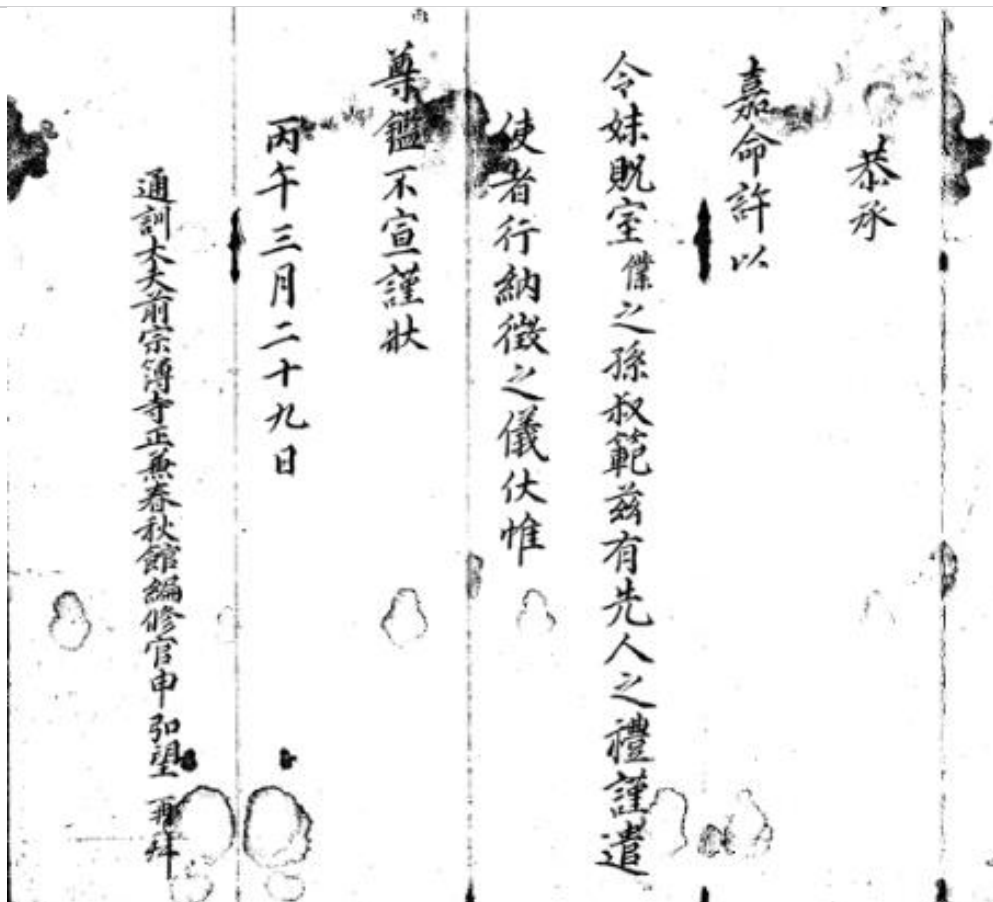 恭承
嘉命許以
令妹貺室僕之孫叔範玆有先人之禮謹遣
使者行納徵之儀伏惟
尊鑑不宣謹狀
丙午三月二十九日
通訓大夫前宗簿寺正兼春秋館編修官申弘望 再拜